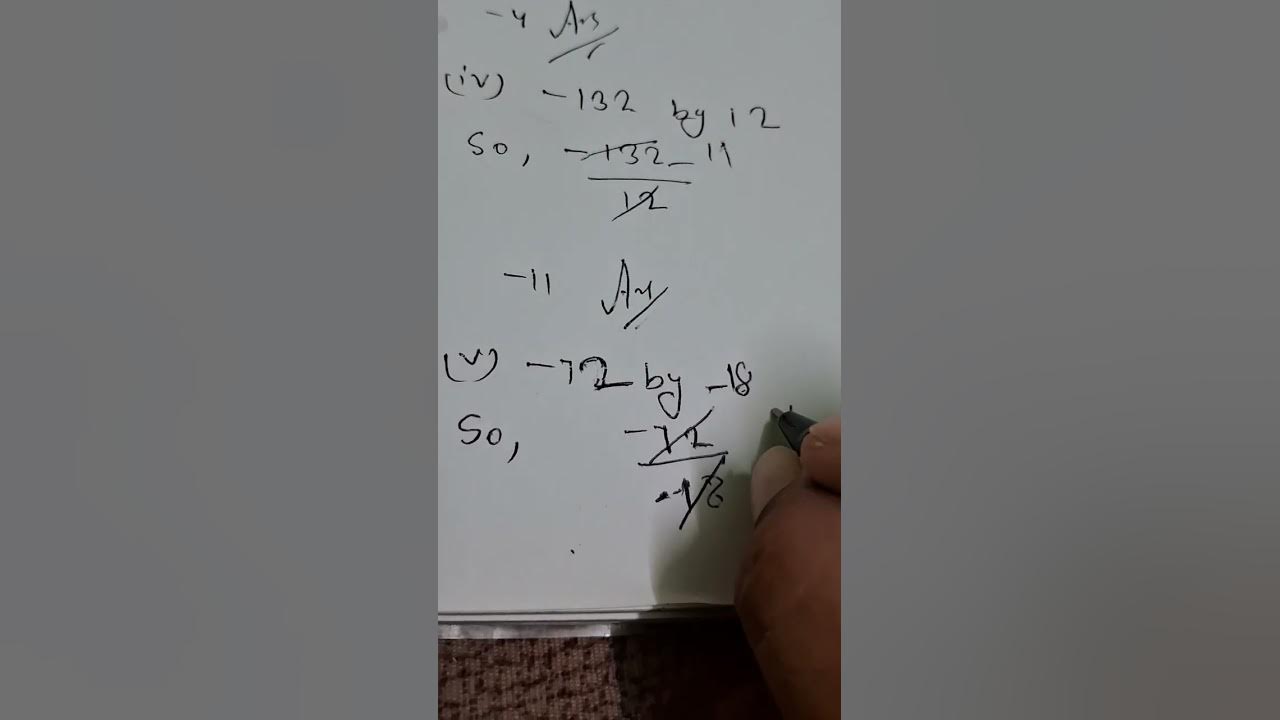 -4 Ans
(iv) -132 by 12
So, -132 - 11
12
-11 Ans
(v) -72 by -18
So, -72
-18